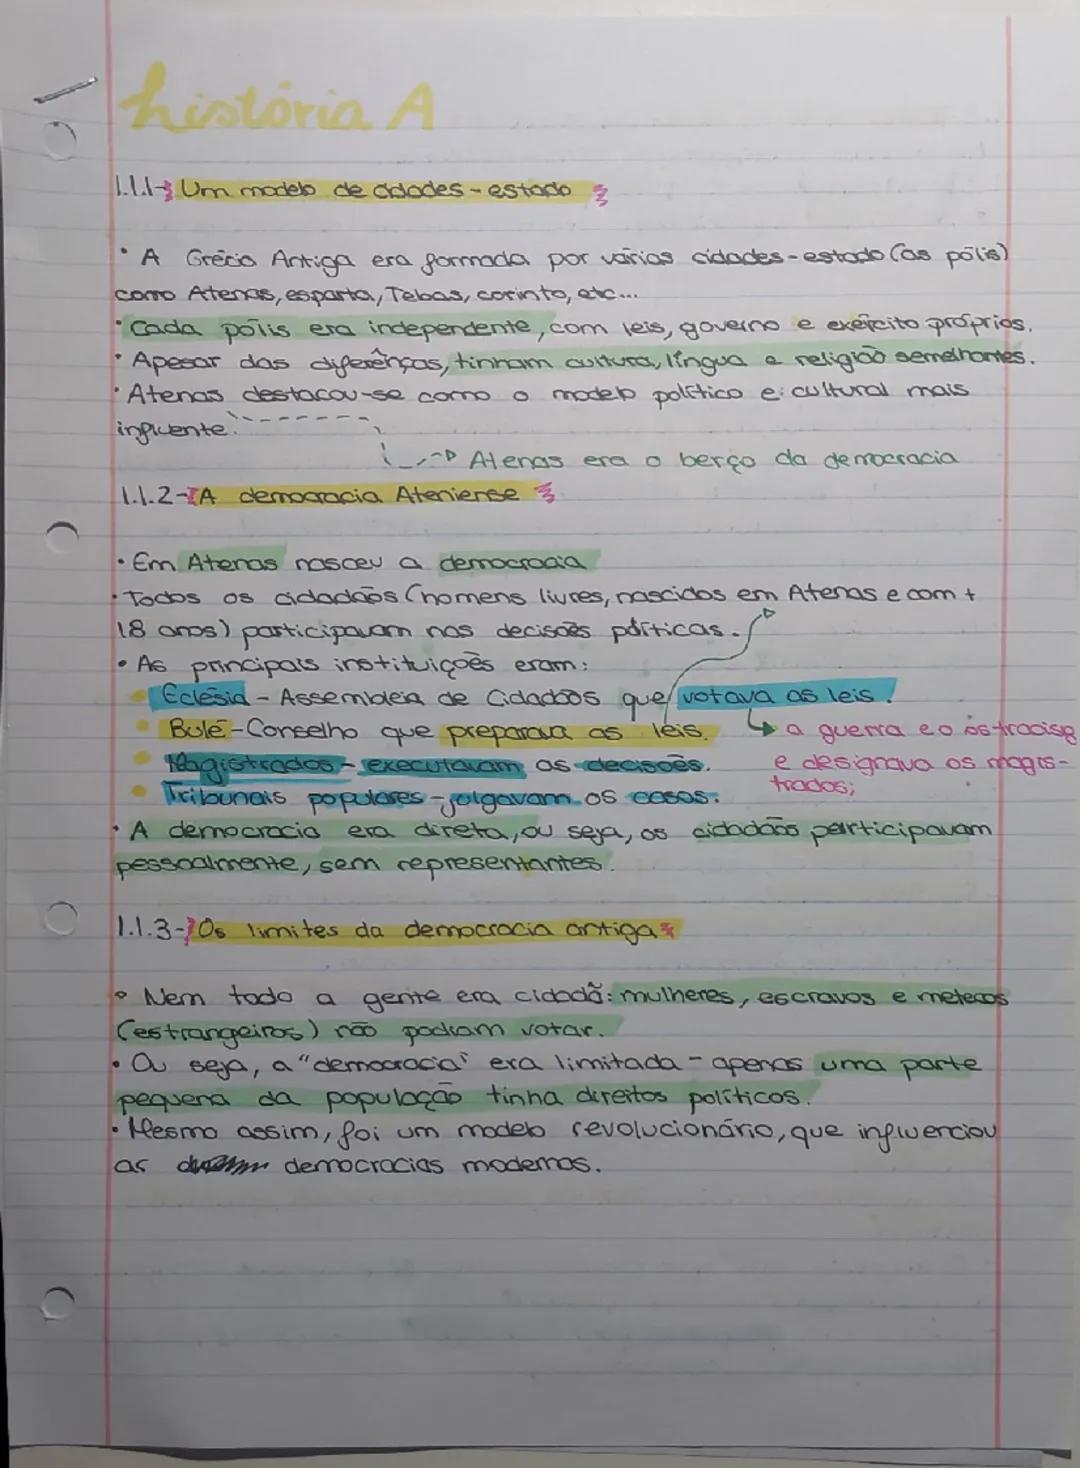 história A
1.1.1- Um modelo de cidades-estado
• A Grécia Antiga era formada por várias cidades-estado (as pólis)
como Atenas, esparta, Tebas, corinto, etc...
• Cada pólis era independente, com leis, governo e exército próprios.
• Apesar das diferênças, tinham cultura, língua e religião semelhantes.
• Atenas destacou-se como o modelo político e cultural mais
influente.
Atenas era o berço da democracia
1.1.2- A democracia Ateniense
• Em Atenas nasceu a democracia
• Todos os cidadãos (homens livres, nascidos em Atenas e com +
18 anos) participavam nas decisões políticas.
• As principais instituições eram:
Eclésia - Assembleia de Cidadãos que votava as leis.
Bulé - Conselho que preparava as leis.
a guerra e o ostracismo
Magistrados - executavam as decisões.
e designava os magis-
trados;
Tribunais populares - julgavam os casos.
• A democracia era direta, ou seja, os cidadãos participavam
pessoalmente, sem representantes.
1.1.3- Os limites da democracia antiga
• Nem todo a gente era cidadã: mulheres, escravos e metecos
(estrangeiros) não podiam votar.
• Ou seja, a "democracia" era limitada - apenas uma parte
pequena da população tinha direitos políticos.
• Mesmo assim, foi um modelo revolucionário, que influenciou
as democracias modernas.